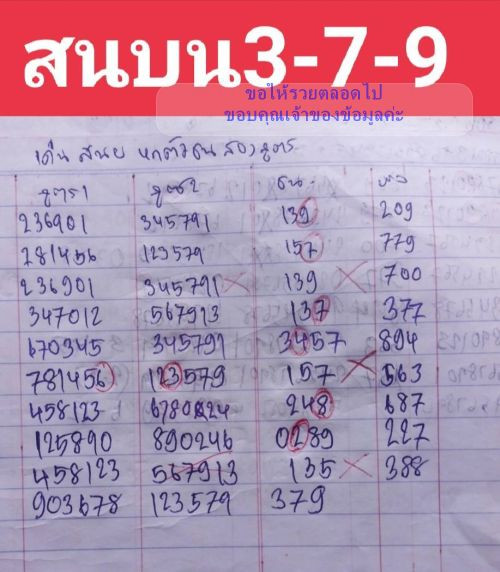 สนบน3-7-9
ขอให้รวยตลอดไป
ขอบคุณเจ้าของข้อมูลค่ะ
เดิน สนบ หกตัวชน สองสูตร
สูตร1 สูตร2 ชน ผล
236901 345791 139 209
281456 123579 157 779
236901 345791 139 700
347012 567913 137 377
670345 345791 3457 894
781456 123579 157 563
458123 248 687
125890 890246 0289 227
458123 567913 135 388
903678 123579 379